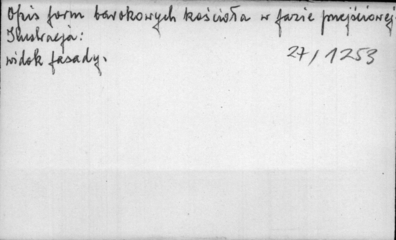 Opis form barokowych kościoła w fazie przejściowej
Ilustracja:
widok fasady.
27/1253